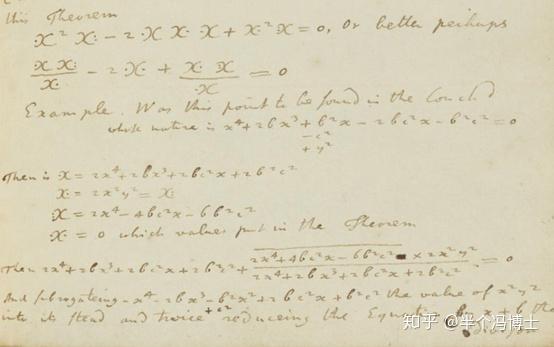 this Theorem
·X² X: − 2 ·X X· ·X· + X·² :X = 0, Or better perhaps
·X X: / X· − 2 ·X· + X· :X / ·X = 0
Example. Was this point to be found in the Conchoid
whose nature is x⁴+2bx³+b²x−2bc²x−b²c² = 0
−c²
+y²
Then is ·X = 2x⁴+2bx³+2bc²x+2b²c²
X· = 2x²y² = X:
:X = 2x⁴−4bc²x−6b²c²
·X· = 0 which values put in the Theorem
Then 2x⁴+2bx³+2bc²x+2b²c² + 2x⁴+4bc²x−6b²c² × 2x²y² / 2x⁴+2bx³+2bc²x+2b²c² = 0
And subrogateing −x⁴−2bx³−b²x²+2bc²x+b²c² the value of x²y²
+c²
into its stead and twice reduceing the Equation by x+b the
知乎 @半个冯博士